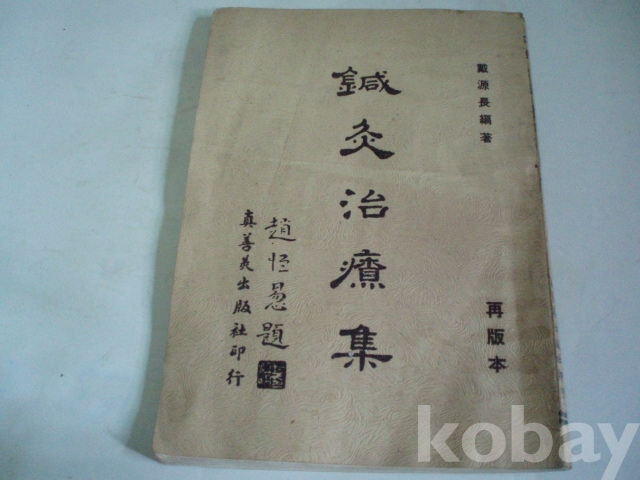 戴源長編著
鍼灸治療集
再版本
趙恒惖題
真善美出版社印行
kobay